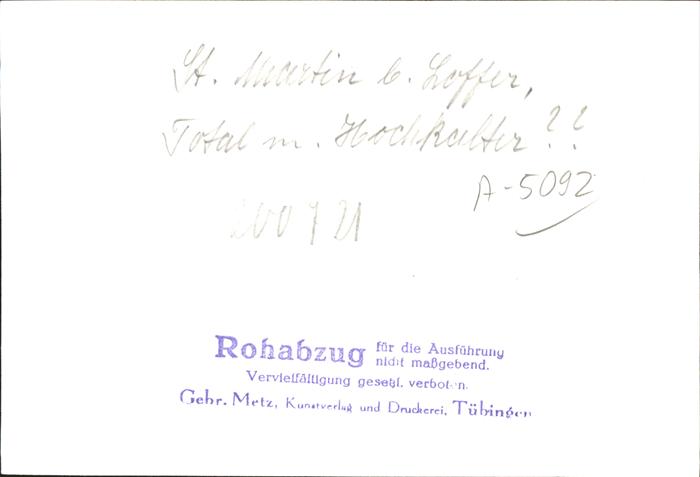 St. Martin b. Loffer,
Total m. Hochkalter ??
A-5092
Rohabzug für die Ausführung
nicht maßgebend.
Vervielfältigung gesetzl. verboten.
Gebr. Metz, Kunstverlag und Druckerei, Tübingen